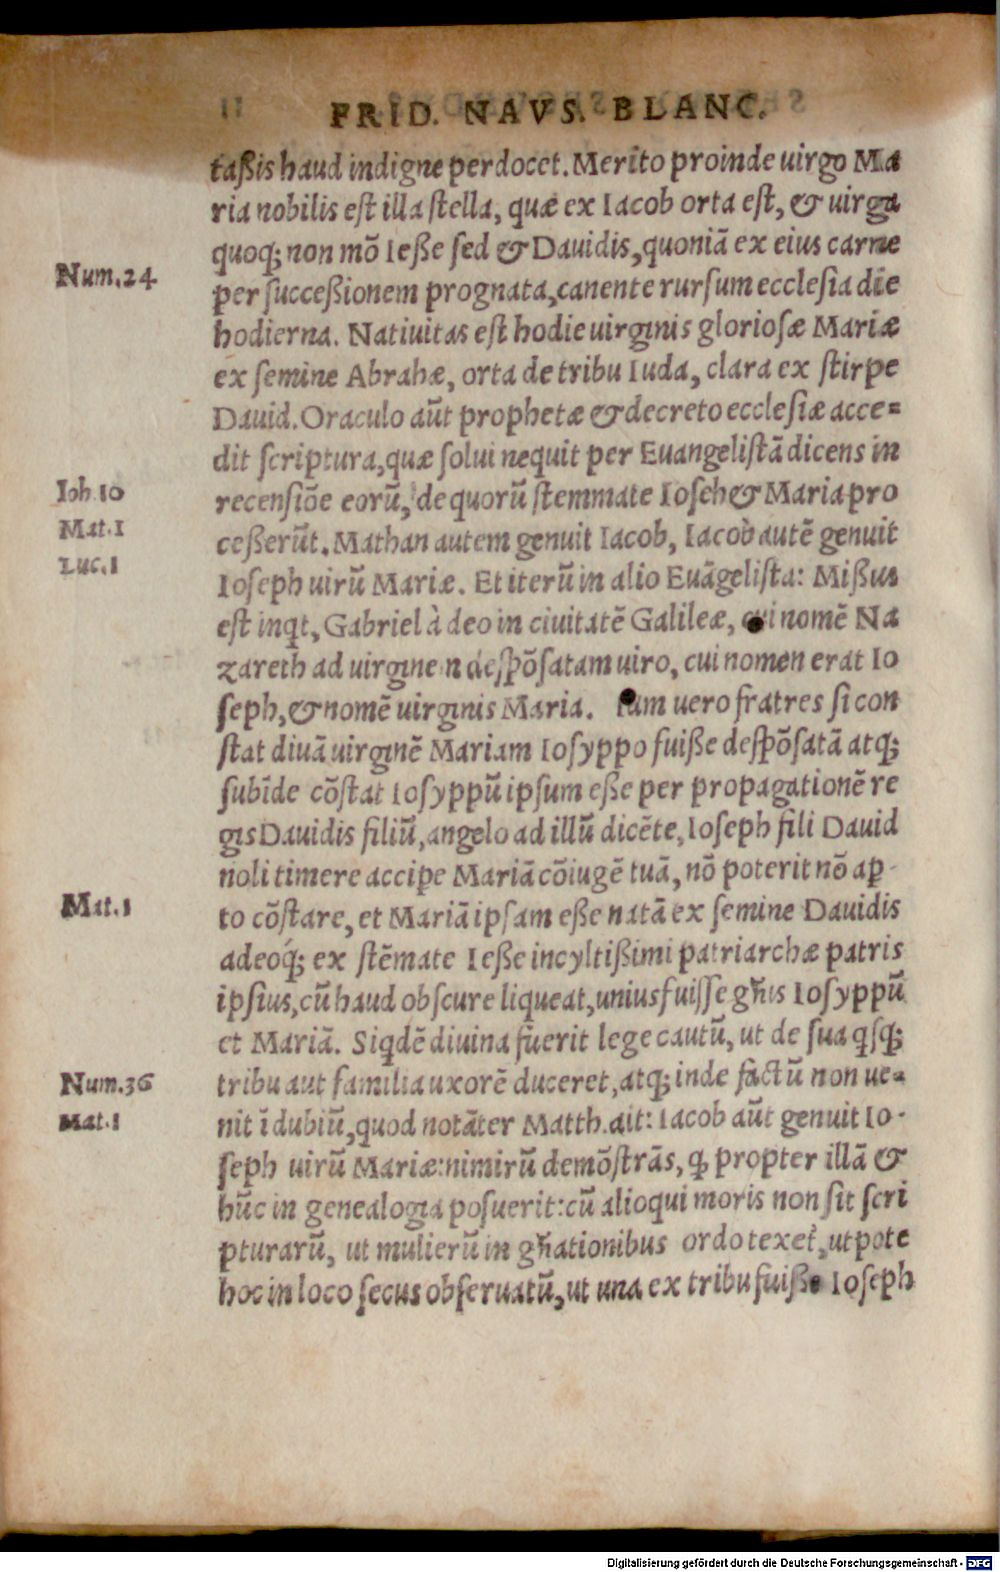 FRID. NAVS. BLANC.
taßis haud indigne perdocet. Merito proinde uirgo Ma
ria nobilis est illa stella, quæ ex Iacob orta est, & uirga
quoq; non mō Ieße sed & Dauidis, quoniā ex eius carne
Num.24
per succeßionem prognata, canente rursum ecclesia die
hodierna. Natiuitas est hodie uirginis gloriosæ Mariæ
ex semine Abrahæ, orta de tribu Iuda, clara ex stirpe
Dauid. Oraculo aūt prophetæ & decreto ecclesiæ acce=
dit scriptura, quæ solui nequit per Euangelistā dicens in
Ioh.10
recensiōe eorū, de quorū stemmate Ioseh & Maria pro
Mat.1
ceßerūt. Mathan autem genuit Iacob, Iacob autē genuit
Luc.1
Ioseph uirū Mariæ. Et iterū in alio Euāgelista: Mißus
est inqt, Gabriel à deo in ciuitatē Galileæ, cui nomē Na
zareth ad uirginen despōsatam uiro, cui nomen erat Io
seph, & nomē uirginis Maria. Iam uero fratres si con
stat diuā uirginē Mariam Iosyppo fuiße despōsatā atq;
subīde cōstat Iosyppū ipsum eße per propagationē re
gis Dauidis filiū, angelo ad illū dicēte, Ioseph fili Dauid
noli timere accipe Mariā cōiugē tuā, nō poterit nō ap-
Mat.1
to cōstare, et Mariā ipsam eße natā ex semine Dauidis
adeoq́; ex stēmate Ieße incyltißimi patriarchæ patris
ipsius, cū haud obscure liqueat, unius fuisse gn̄is Iosyppū
et Mariā. Siqdē diuina fuerit lege cautū, ut de sua qsq;
Num.36
tribu aut familia uxorē duceret, atq; inde factū non ue=
Mat.1
nit ī dubiū, quod notāter Matth. ait: Iacob aūt genuit Io-
seph uirū Mariæ: nimirū demōstrās, q̃ propter illā &
hūc in genealogia posuerit: cū alioqui moris non sit scri
pturarū, ut mulierū in gn̄ationibus ordo texet̃, utpote
hoc in loco secus obseruatū, ut una ex tribu fuiße Ioseph
Digitalisierung gefördert durch die Deutsche Forschungsgemeinschaft - DFG